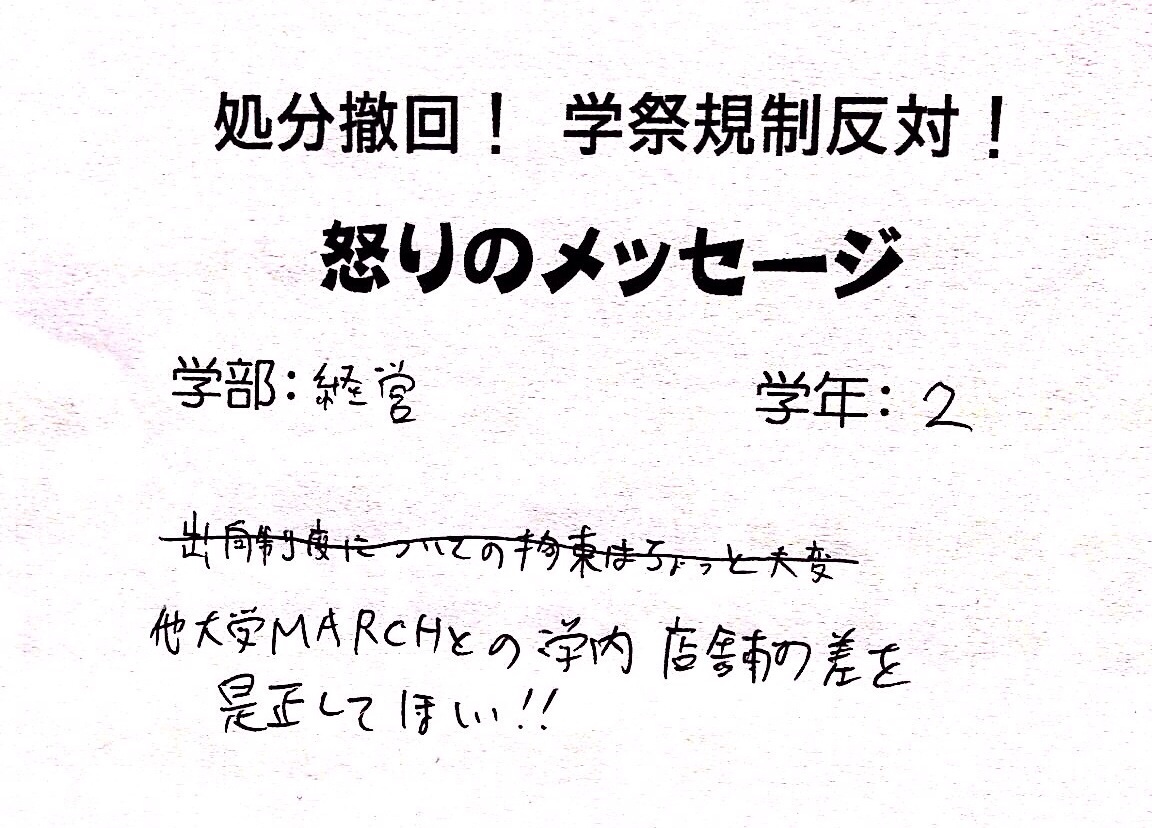 処分撤回！ 学祭規制反対！
怒りのメッセージ
学部：経営 学年：2
出向制度についての拘束はちょっと大変
他大学MARCHとの学内店舗の差を
是正してほしい!!